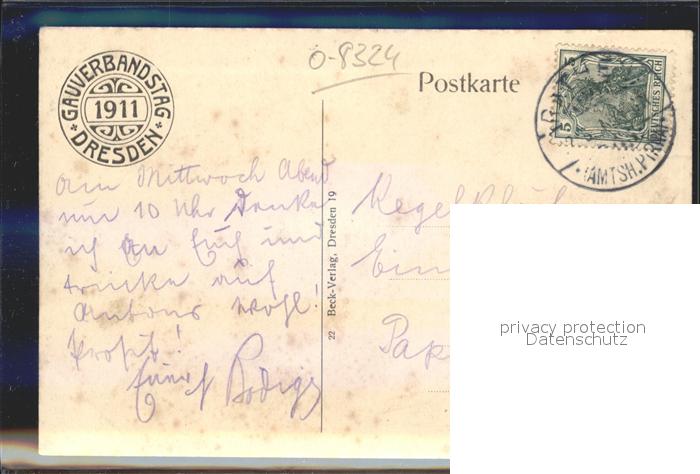 GAUVERBANDSTAG
1911
DRESDEN
0-8324
Postkarte
5
DEUTSCHES REICH
(AMTSH. PIRNA)
Am Mittwoch Abend
um 10 Uhr Denke
ich an Euch und
trinke auf
Antons Wohl!
Prosit!
Euer
22 Beck-Verlag, Dresden 19
Kegel
Ein
Pap
privacy protection
Datenschutz